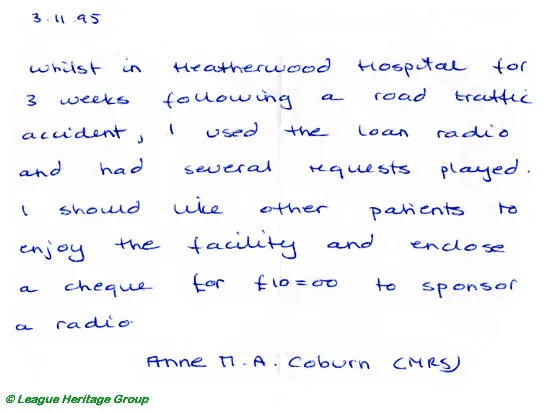 3.11.95
Whilst in Heatherwood Hospital for
3 weeks following a road traffic
accident, I used the loan radio
and had several requests played.
I should like other patients to
enjoy the facility and enclose
a cheque for £10=00 to sponsor
a radio.
Anne M.A. Coburn (MRS)
© League Heritage Group